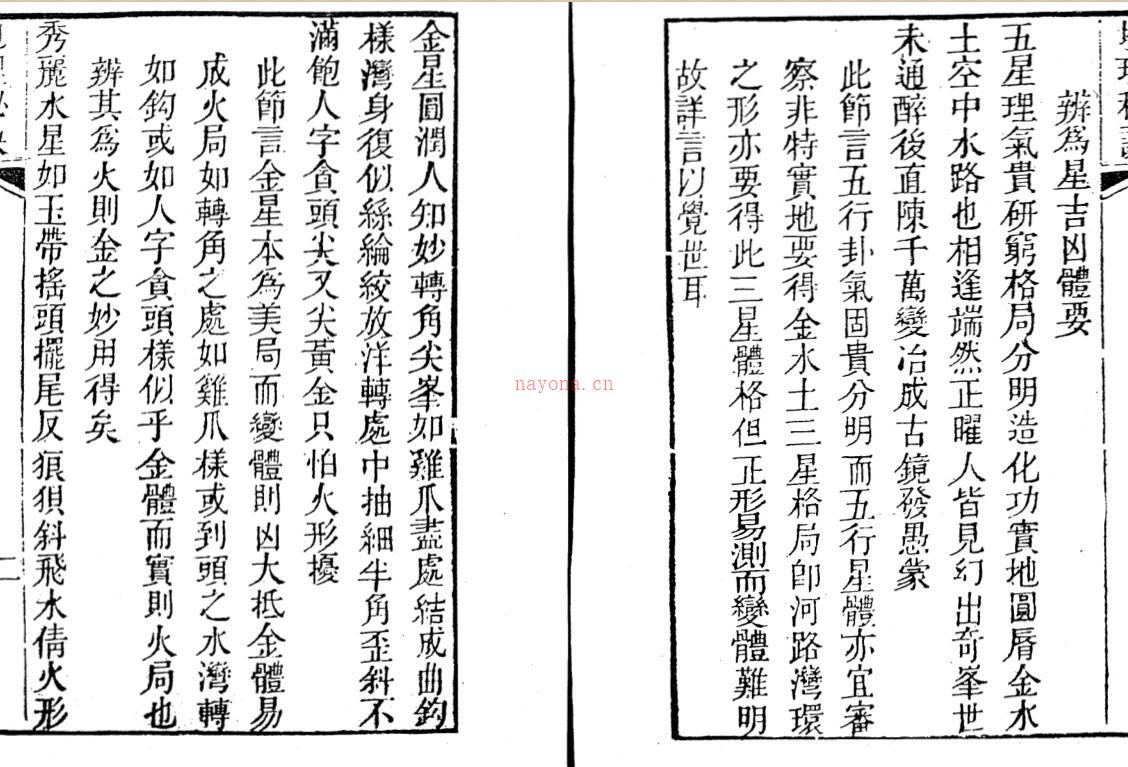 辨爲星吉凶體要
五星理氣貴研窮格局分明造化功實地圓唇金水
土空中水路也相逢端然正曜人皆見幻出奇峯世
未通醉後直陳千萬變冶成古鏡發愚蒙
此節言五行卦氣固貴分明而五行星體亦宜審
察非特實地要得金水土三星格局卽河路灣環
之形亦要得此三星體格但正形易測而變體難明
故詳言以覺世耳
金星圓潤人知妙轉角尖峯如雞爪盡處結成曲鈎
樣灣身復似絲綸絞放洋轉處中抽細牛角歪斜不
滿飽人字貪頭尖又尖黃金只怕火形擾
此節言金星本爲美局而變體則凶大抵金體易
成火局如轉角之處如雞爪樣或到頭之水灣轉
如鈎或如人字貪頭樣似乎金體而實則火局也
辨其爲火則金之妙用得矣
秀麗水星如玉帶搖頭擺尾反狼狽斜飛水倩火形
二
nayona.cn